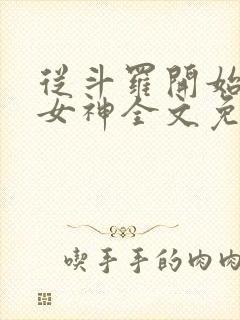 從斗羅開始
女神全文免
喫手手的肉肉